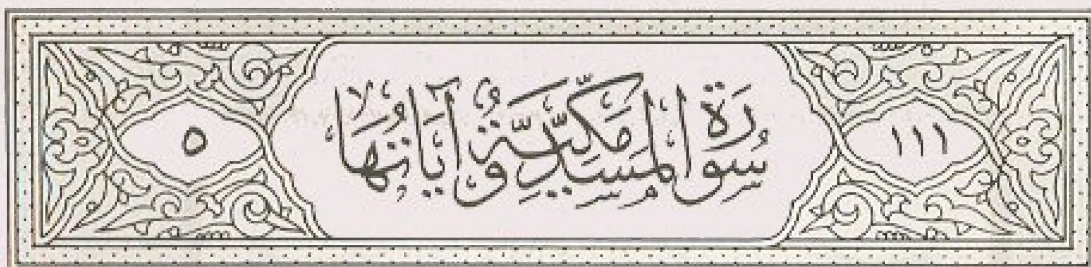 ١١١ سُورَةُ المَسَدِ مَكِّيَّةٌ وَآيَاتُهَا ٥